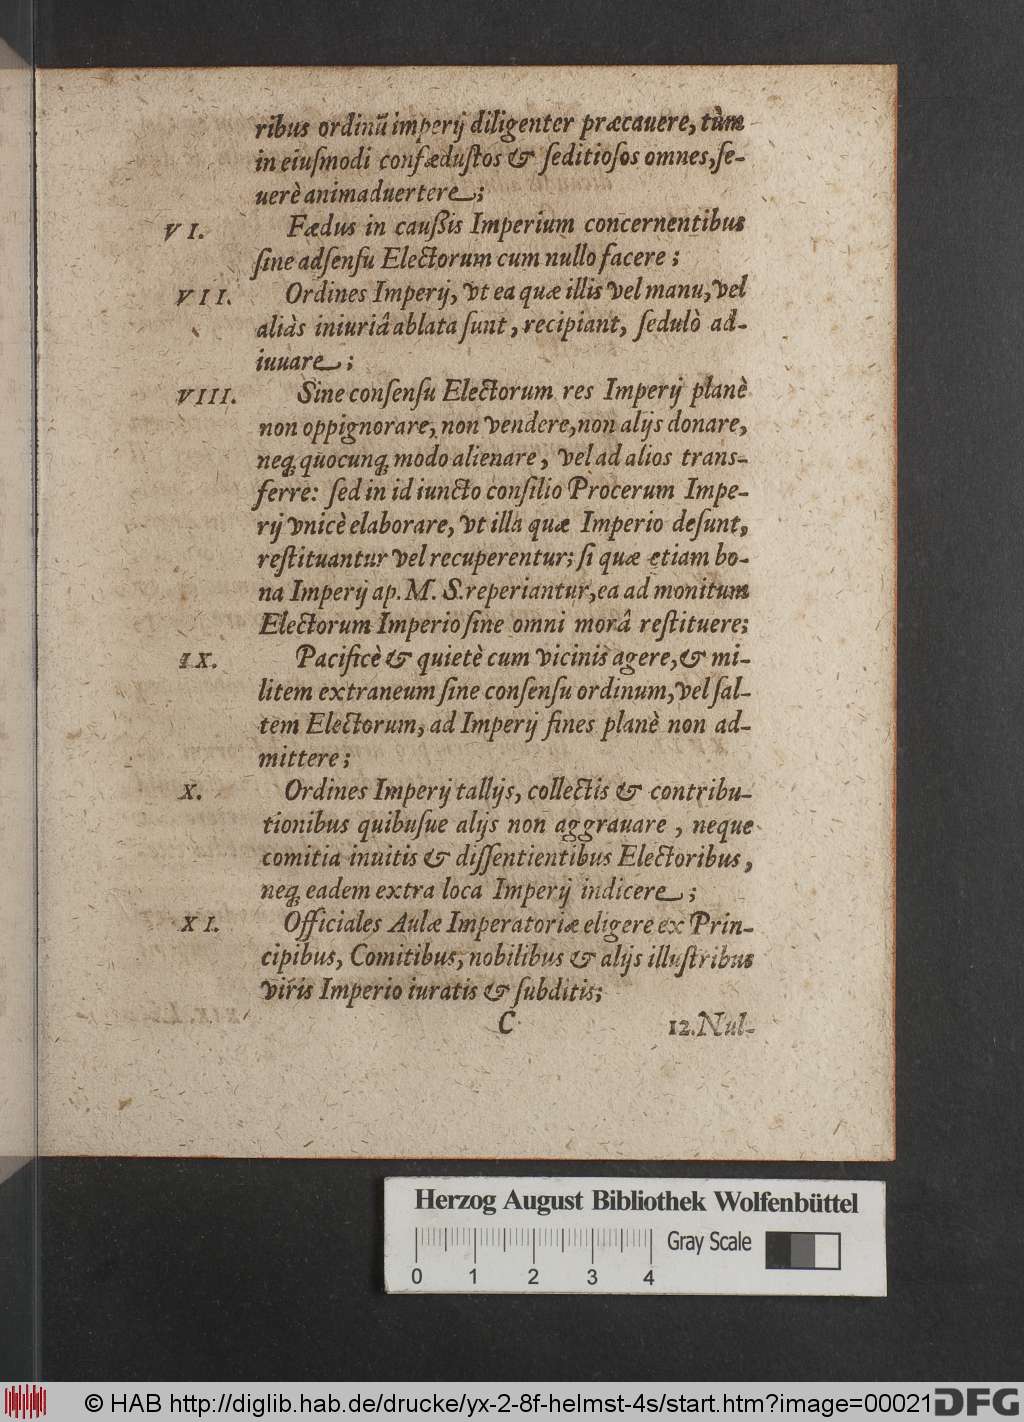 ribus ordinū imperij diligenter præcauere, tùm
in eiuſmodi confæduſtos & ſeditioſos omnes, ſe-
uerè animaduertere;
VI. Fædus in cauſsis Imperium concernentibus
ſine adſenſu Electorum cum nullo facere;
VII. Ordines Imperij, vt ea quæ illis vel manu, vel
aliàs iniuriâ ablata ſunt, recipiant, ſedulò ad-
iuuare;
VIII. Sine conſenſu Electorum res Imperij planè
non oppignorare, non vendere, non alijs donare,
neq; quocunq; modo alienare, vel ad alios trans-
ferre: ſed in id iuncto conſilio Procerum Impe-
rij vnicè elaborare, vt illa quæ Imperio deſunt,
reſtituantur vel recuperentur; ſi quæ etiam bo-
na Imperij ap. M. S. reperiantur, ea ad monitum
Electorum Imperio ſine omni morâ reſtituere;
IX. Pacificè & quietè cum vicinis agere, & mi-
litem extraneum ſine conſenſu ordinum, vel ſal-
tem Electorum, ad Imperij fines planè non ad-
mittere;
X. Ordines Imperij tallijs, collectis & contribu-
tionibus quibuſue alijs non aggrauare, neque
comitia inuitis & diſſentientibus Electoribus,
neq; eadem extra loca Imperij indicere;
XI. Officiales Aulæ Imperatoriæ eligere ex Prin-
cipibus, Comitibus, nobilibus & alijs illuſtribus
viris Imperio iuratis & ſubditis;
C 12. Nul-
Herzog August Bibliothek Wolfenbüttel
Gray Scale
0 1 2 3 4
© HAB http://diglib.hab.de/drucke/yx-2-8f-helmst-4s/start.htm?image=00021
DFG